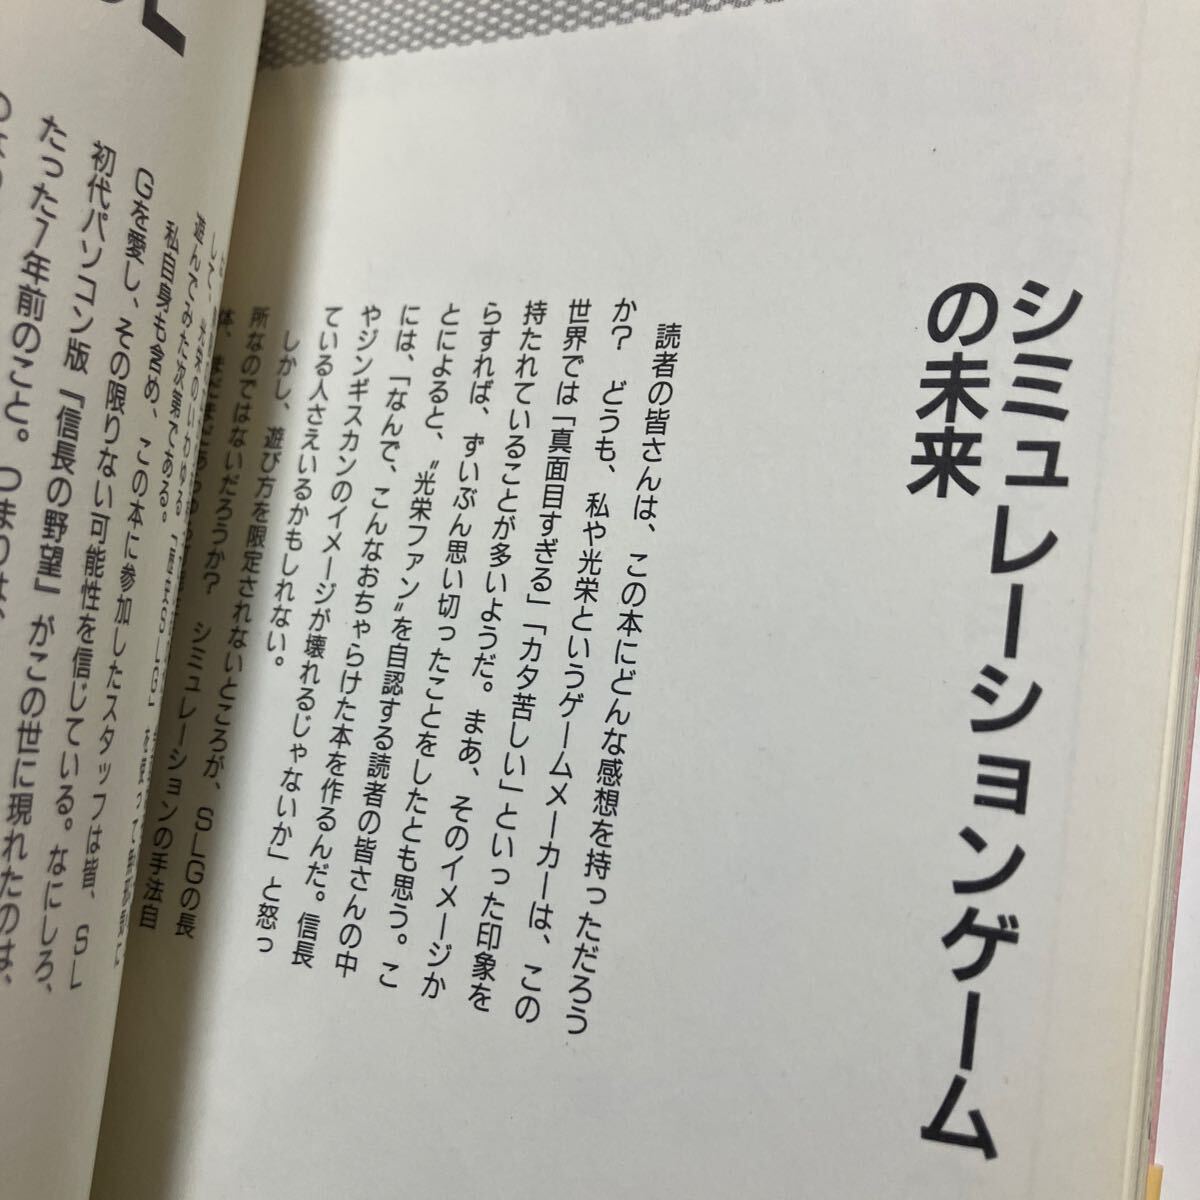 シミュレーションゲーム
の未来
読者の皆さんは、この本にどんな感想を持っただろう
か？　どうも、私や光栄というゲームメーカーは、この
世界では「真面目すぎる」「カタ苦しい」といった印象を
持たれていることが多いようだ。まあ、そのイメージか
らすれば、ずいぶん思い切ったことをしたとも思う。こ
とによると、〝光栄ファン〟を自認する読者の皆さんの中
には、「なんで、こんなおちゃらけた本を作るんだ。信長
やジンギスカンのイメージが壊れるじゃないか」と怒っ
ている人さえいるかもしれない。
しかし、遊び方を限定されないところが、SLGの長
所なのではないだろうか？　シミュレーションの手法自
体、まだまだ
遊んでみた次第である。
私自身も含め、この本に参加したスタッフは皆、SL
Gを愛し、その限りない可能性を信じている。なにしろ、
初代パソコン版『信長の野望』がこの世に現れたのは、
たった7年前のこと。つまりは、